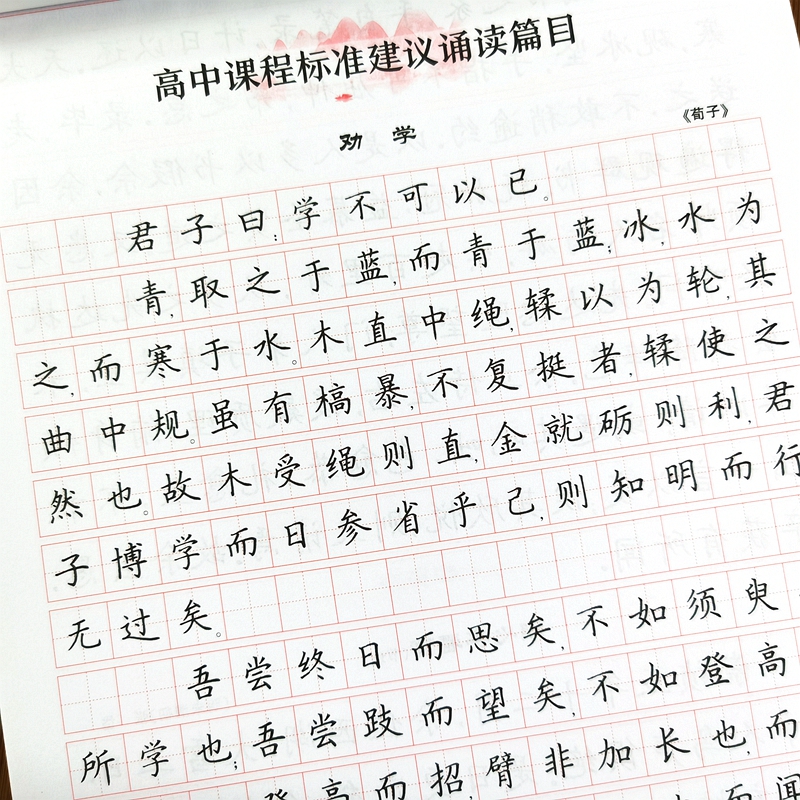 高中课程标准建议诵读篇目
劝学
《荀子》
君子曰:学不可以已。
青,取之于蓝,而青于蓝;冰,水为
之,而寒于水。木直中绳,𫐓以为轮,其
曲中规。虽有槁暴,不复挺者,𫐓使之
然也。故木受绳则直,金就砺则利,君
子博学而日参省乎己,则知明而行
无过矣。
吾尝终日而思矣,不如须臾
所学也;吾尝跂而望矣,不如登高
登高而招,臂非加长也,而
而闻